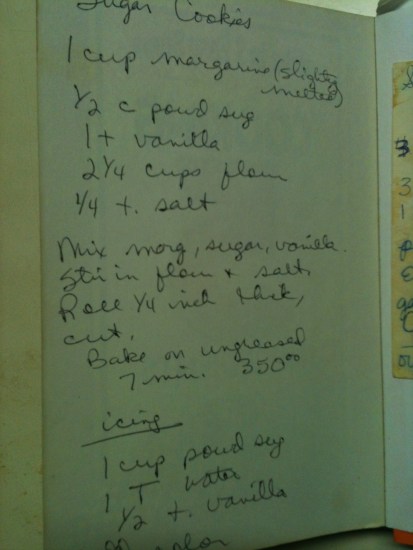 Sugar Cookies
1 cup margarine (slightly
melted)
1/2 c powd sug
1 t vanilla
2 1/4 cups flour
1/4 t. salt
Mix marg, sugar, vanilla.
Stir in flour + salt,
Roll 1/4 inch thick,
cut.
Bake on ungreased
7 min. 350°°
icing
1 cup powd sug
1 T water
1/2 t. vanilla
color
3
3
1